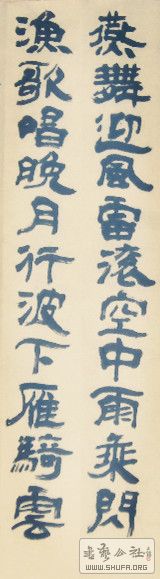 燕舞迎風雷滾空中雨乘閃
漁歌唱晚月行波下雁騎雲
书艺公社
WWW.SHUFA.ORG